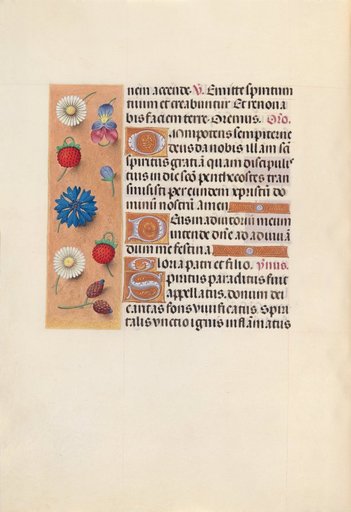 nem accende. V. Emitte spiritum
tuum et creabuntur. Et renoua
bis faciem terre. Oremus. Oro.
Omnipotens sempiterne
deus da nobis illam scī
spiritus gratiā quam discipulis
tuis in die scō penthecostes tran
smisisti per eundem xpristū do
minū nostrū amen
Deus in adiutorium meum
intende dn̄e ad adiuuā
dum me festina
Gloria patri et filio. ymnus.
Spiritus paraclitus fuit
appellatus. donum dei
caritas fons viuificatus. Spiri
talis vnctio ignis inflāmatus